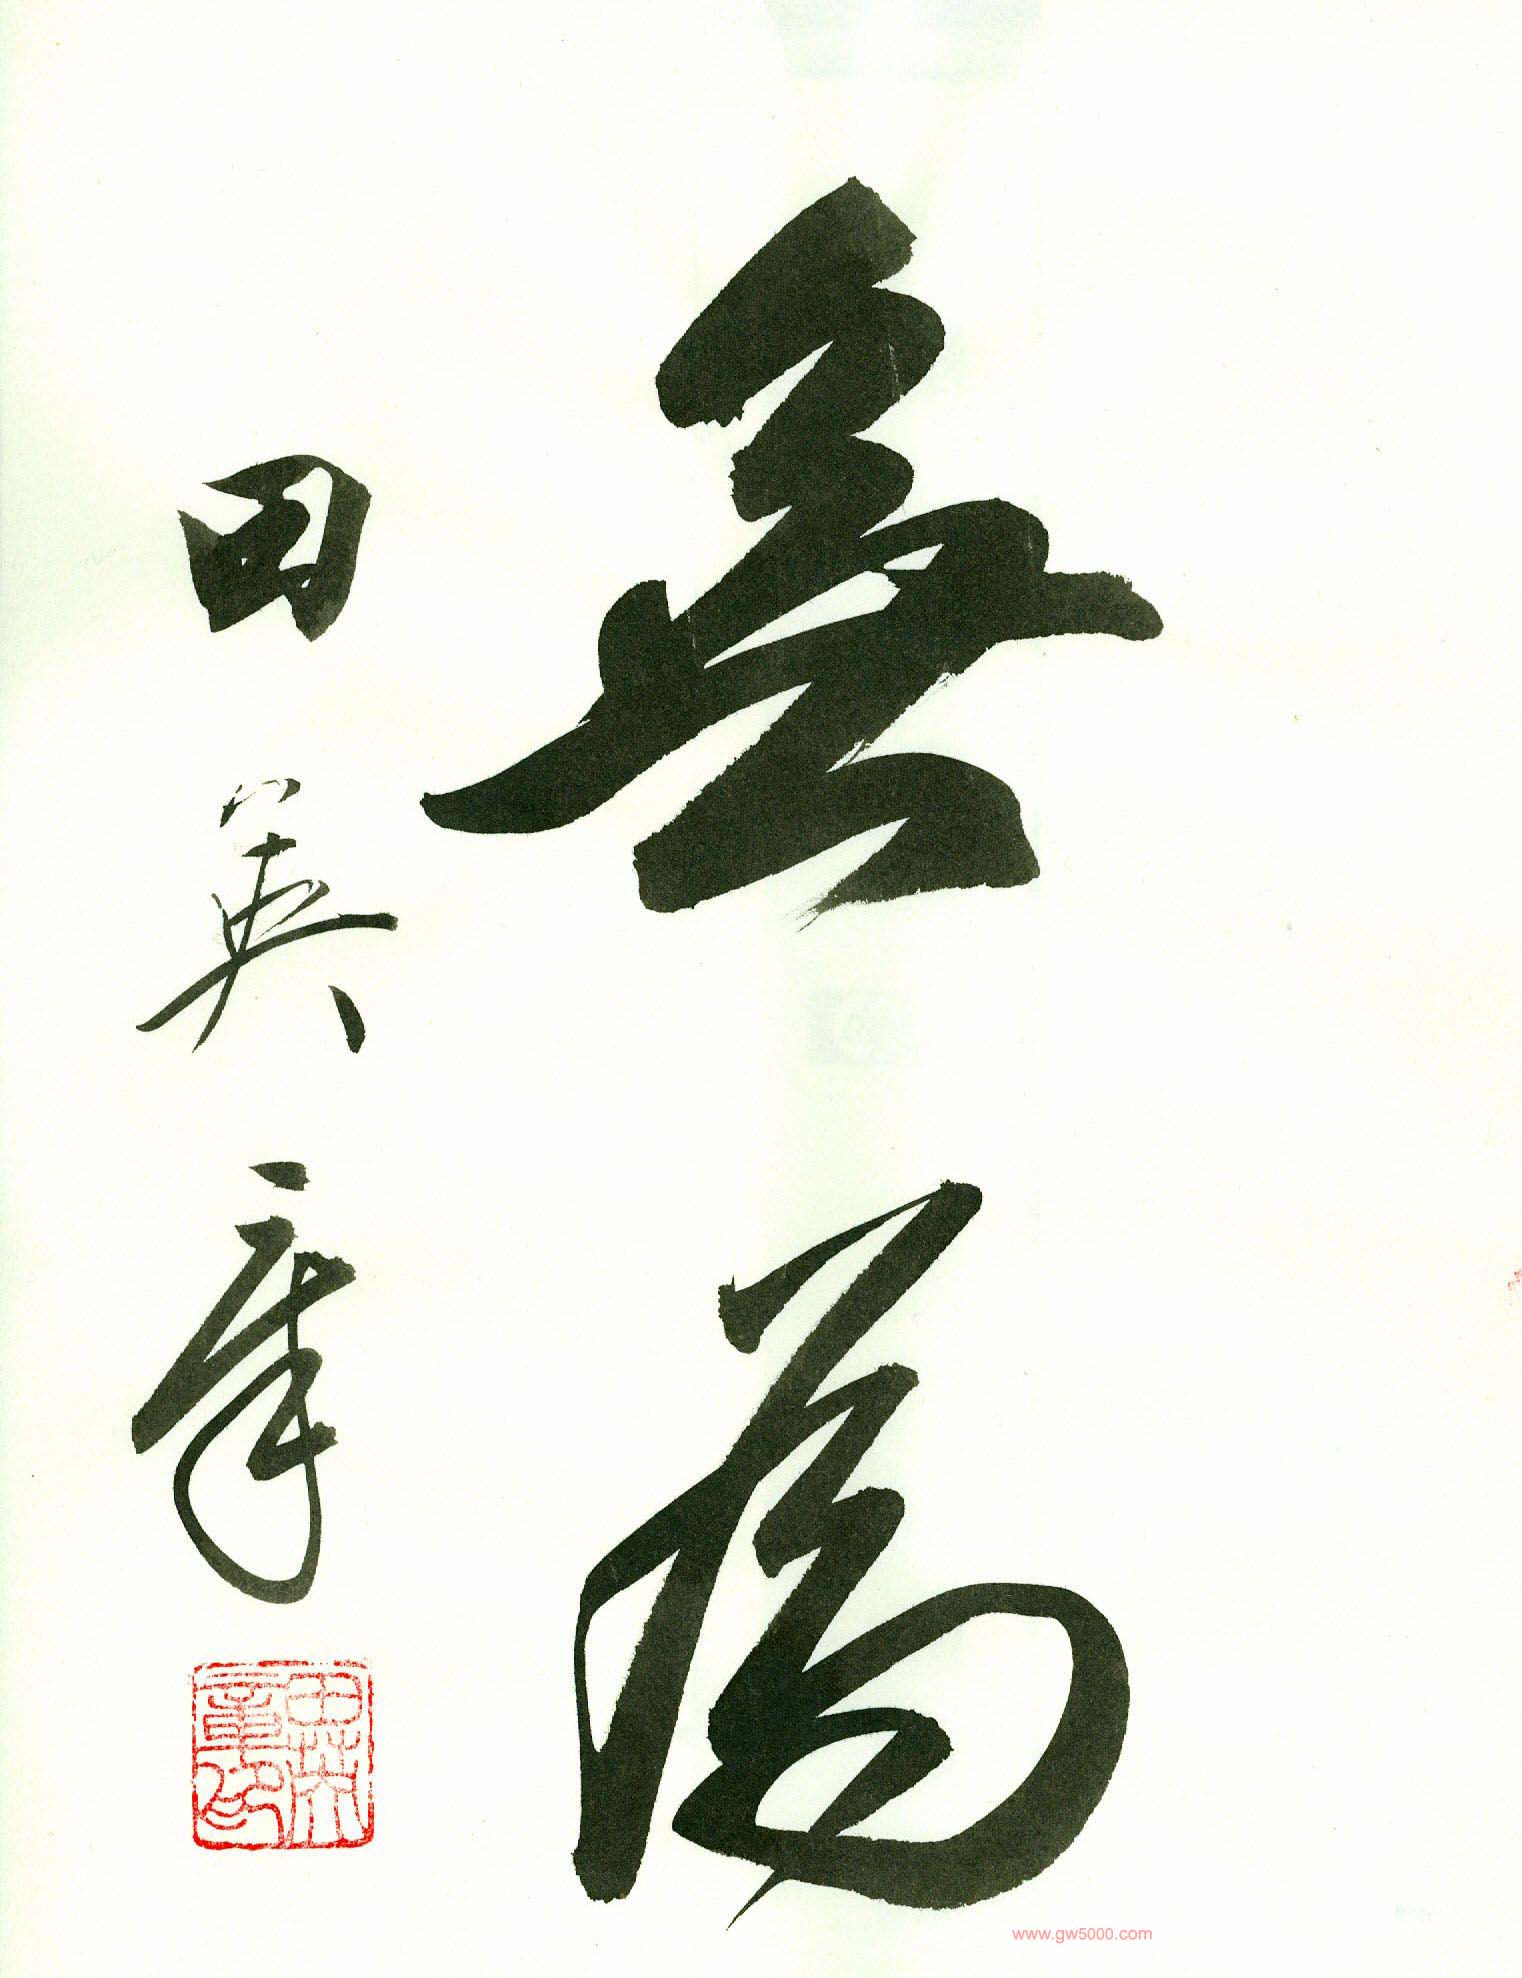 無為
田英章
田英章印
www.gw5000.com